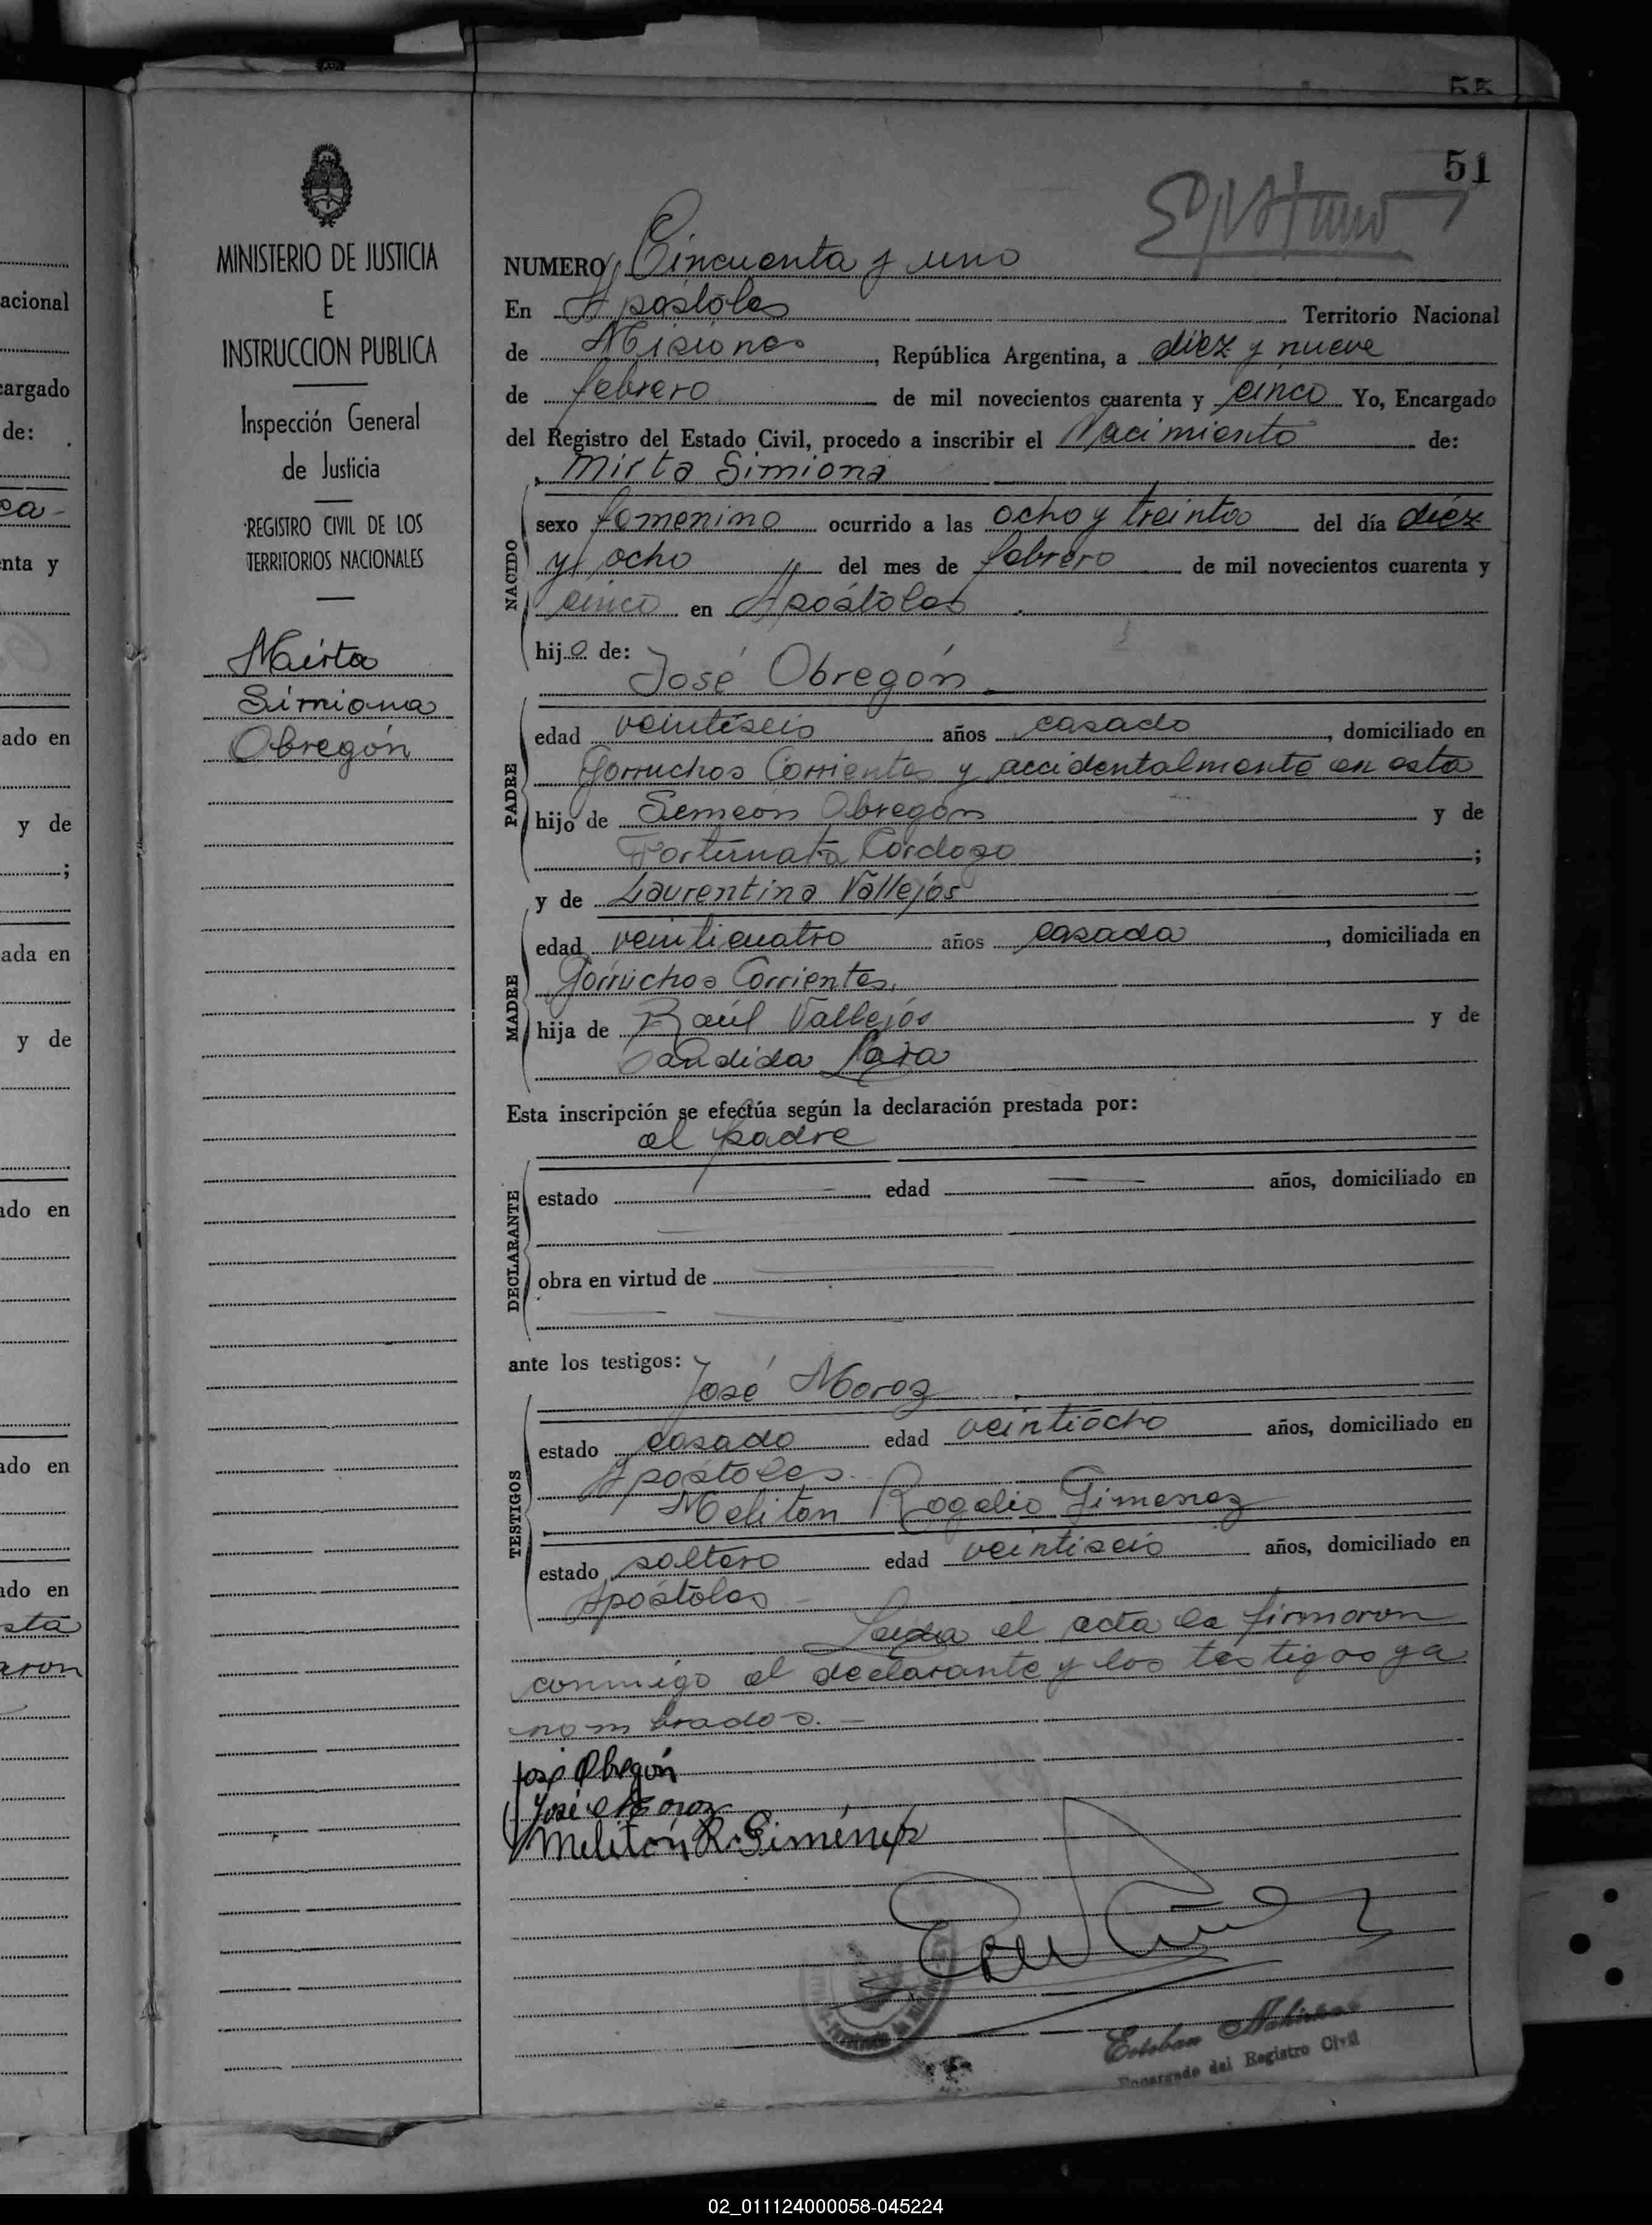 55
51
MINISTERIO DE JUSTICIA
E
INSTRUCCION PUBLICA
Inspección General
de Justicia
REGISTRO CIVIL DE LOS
TERRITORIOS NACIONALES
Mirta
Simiona
Obregón
NUMERO Cincuenta y uno
En Apóstoles Territorio Nacional
de Misiones, República Argentina, a diez y nueve
de febrero de mil novecientos cuarenta y cinco Yo, Encargado
del Registro del Estado Civil, procedo a inscribir el Nacimiento de:
Mirta Simiona
NACIDO
sexo femenino ocurrido a las ocho y treinta del día diez
y ocho del mes de febrero de mil novecientos cuarenta y
cinco en Apóstoles
hija de:
José Obregón
PADRE
edad veintiseis años casado, domiciliado en
Garruchos Corrientes y accidentalmente en esta
hijo de Semeón Obregón y de
Fortunata Cardozo;
y de Laurentina Vallejos
MADRE
edad veinticuatro años casada, domiciliada en
Garruchos Corrientes.
hija de Raúl Vallejos y de
Candida Lara
Esta inscripción se efectúa según la declaración prestada por:
el padre
DECLARANTE
estado edad años, domiciliado en
obra en virtud de
ante los testigos:
José Moroz
TESTIGOS
estado casado edad veintiocho años, domiciliado en
Apóstoles.
Meliton Rogelio Gimenez
estado soltero edad veintiseis años, domiciliado en
Apóstoles
Leída el acta la firmaron
conmigo el declarante y los testigos ya
nombrados.
José Obregón
José Moroz
Melitón R. Giménez
Esteban
Encargado del Registro Civil
acional
cargado
de:
nta y
ado en
y de
;
ada en
y de
ado en
ado en
ado en
sta
aron
02_011124000058-045224